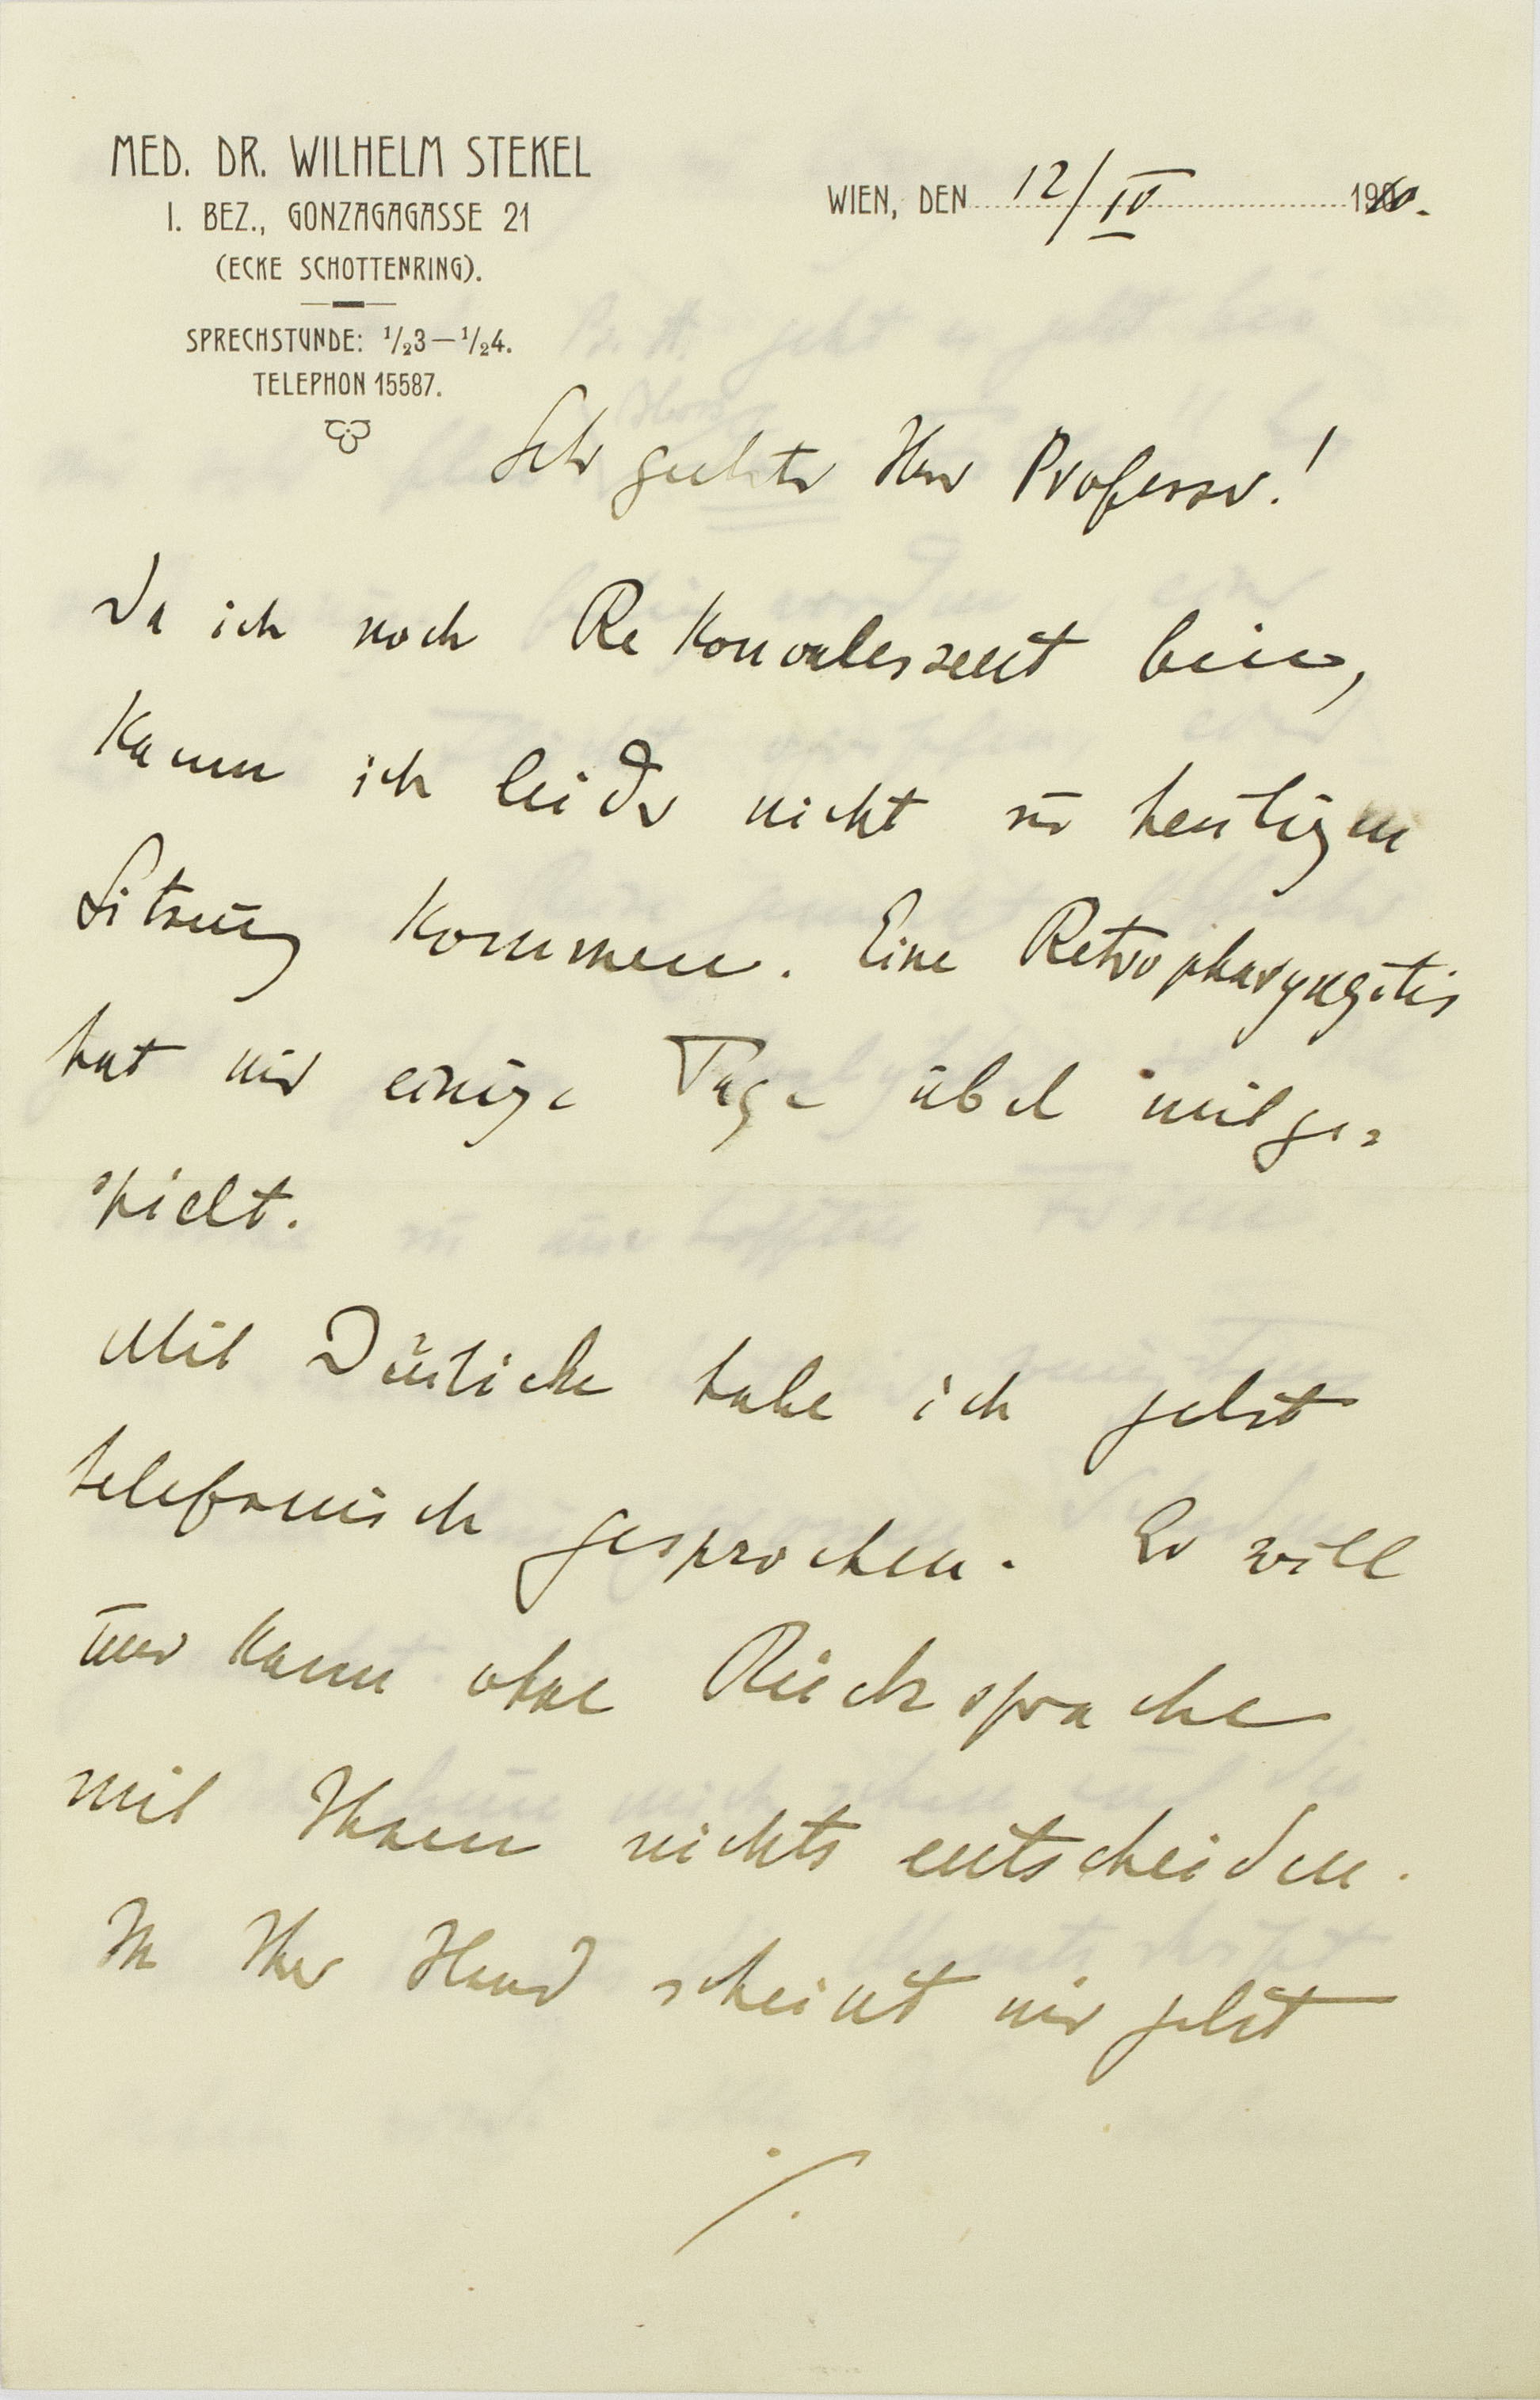 MED. DR. WILHELM STEKEL
I. BEZ., GONZAGAGASSE 21
(ECKE SCHOTTENRING).
SPRECHSTUNDE: 1/23–1/24.
TELEPHON 15587.
WIEN, DEN 12/IV 1910.
Sehr geehrter Herr Professor!
Da ich noch Rekonvaleszent bin,
kann ich leider nicht zur heutigen
Sitzung kommen. Eine Retropharyngitis
hat mir einige Tage übel mitge-
spielt.
Mit Deuticke habe ich selbst
telefonisch gesprochen. Er will
und kann ohne Rücksprache
mit Ihnen nichts entscheiden.
In Ihrer Hand scheint mir selbst
./.